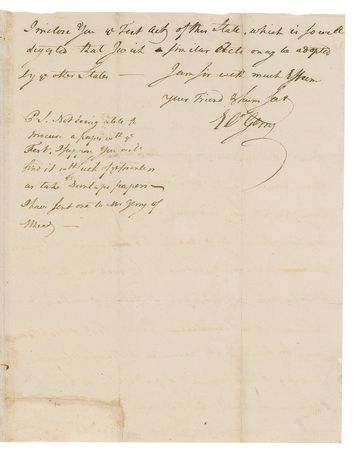 I inclose You ye Test Act of this State, which is so well
digested that I wish a similar Act may be adopted
by ye other States — I am sir with much Esteem
your Friend & hum Sert
E Gerry
P.S. Not being able to
procure a paper with ye
Test, I suppose You will
find it with such of ye
as take Dunlaps papers —
I have sent one to Mr Gerry of